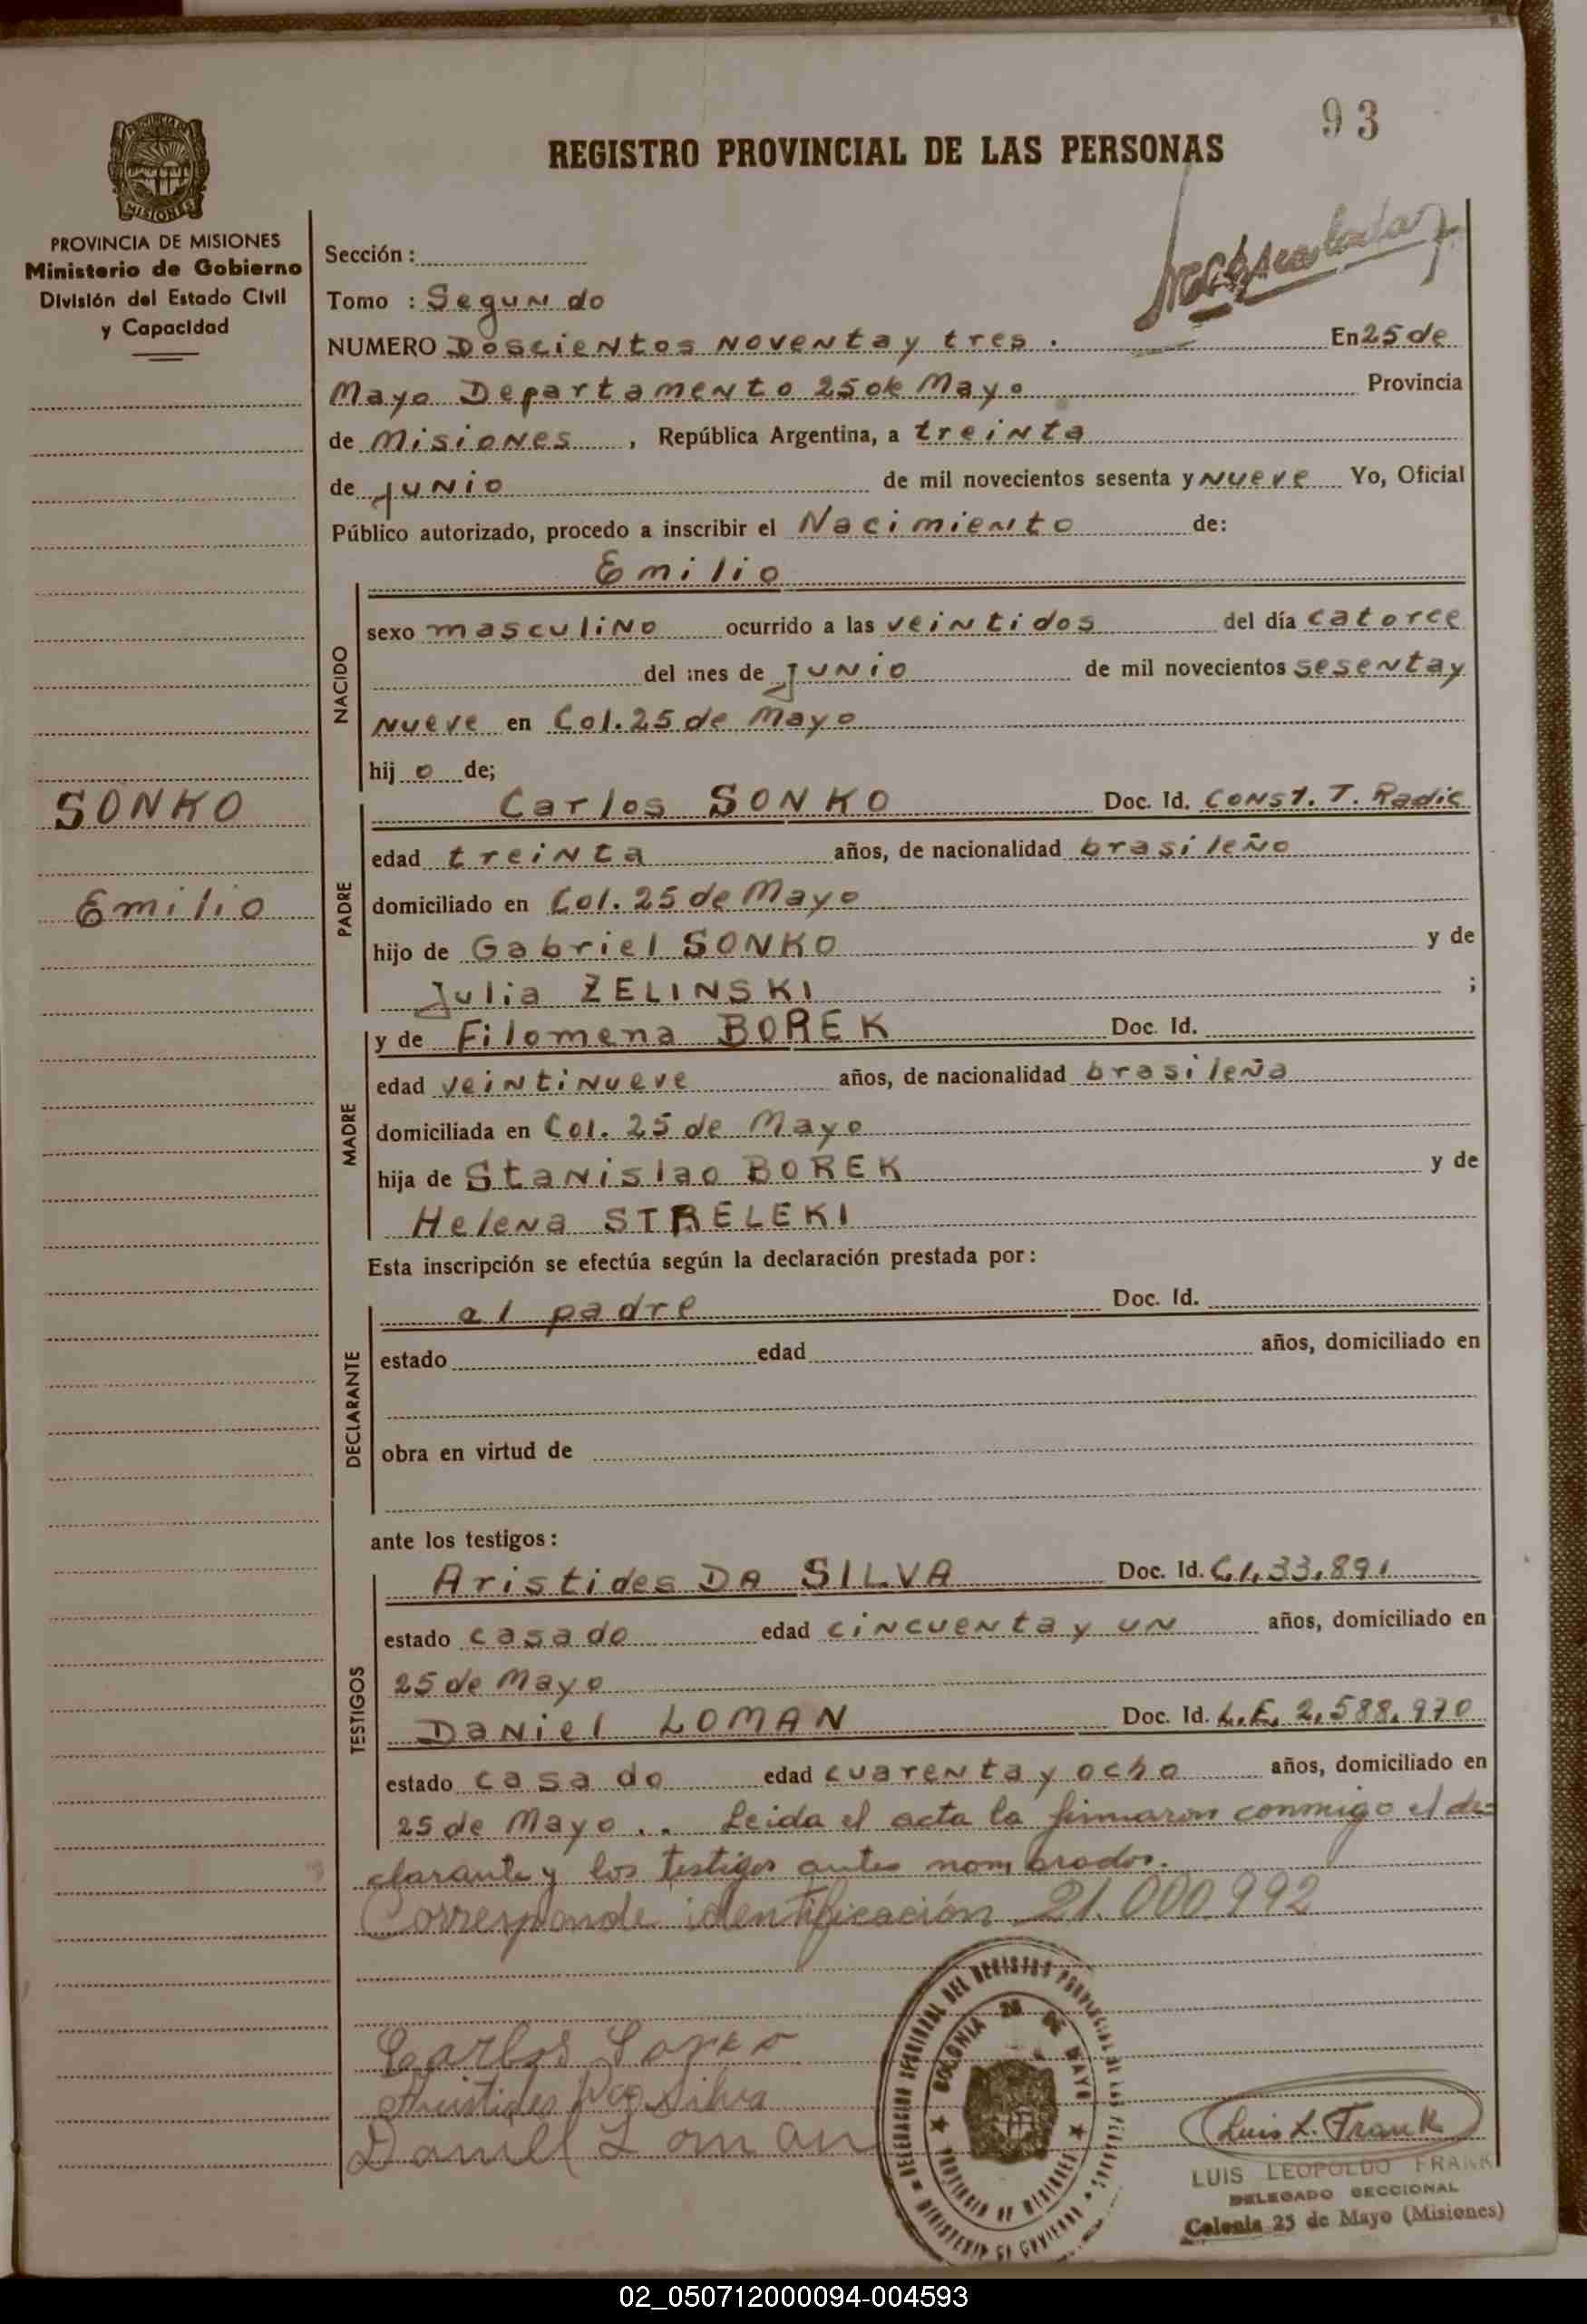 93
REGISTRO PROVINCIAL DE LAS PERSONAS
PROVINCIA DE MISIONES
Ministerio de Gobierno
División del Estado Civil
y Capacidad
Sección :
Tomo : Segundo
NUMERO Doscientos Noventa y tres . En 25 de
Mayo Departamento 25 de Mayo Provincia
de Misiones , República Argentina, a treinta
de Junio de mil novecientos sesenta y Nueve Yo, Oficial
Público autorizado, procedo a inscribir el Nacimiento de:
Emilio
NACIDO
sexo masculino ocurrido a las veintidos del día catorce
del mes de Junio de mil novecientos sesenta y
Nueve en Col. 25 de Mayo
hij o de;
SONKO
Emilio
PADRE
Carlos SONKO Doc. Id. Const. T. Radic
edad treinta años, de nacionalidad brasileño
domiciliado en Col. 25 de Mayo
hijo de Gabriel SONKO y de
Julia ZELINSKI ;
MADRE
y de Filomena BOREK Doc. Id.
edad veintinueve años, de nacionalidad brasileña
domiciliada en Col. 25 de Mayo
hija de Stanislao BOREK y de
Helena STRELEKI
Esta inscripción se efectúa según la declaración prestada por :
DECLARANTE
al padre Doc. Id.
estado edad años, domiciliado en
obra en virtud de
ante los testigos :
TESTIGOS
Aristides DA SILVA Doc. Id. C.I. 33.891
estado casado edad cincuenta y un años, domiciliado en
25 de Mayo
Daniel LOMAN Doc. Id. L.E. 2.588.970
estado casado edad cuarenta y ocho años, domiciliado en
25 de Mayo .. Leida el acta la firmaron conmigo el de=
clarante y los testigos antes nombrados.
Corresponde identificación 21.000.992
Carlos Sonko
Aristides Da Silva
Daniel Loman
COLONIA 25 DE MAYO
PROVINCIA DE MISIONES
Luis L. Frank
LUIS LEOPOLDO FRANK
DELEGADO SECCIONAL
Colonia 25 de Mayo (Misiones)
02_050712000094-004593